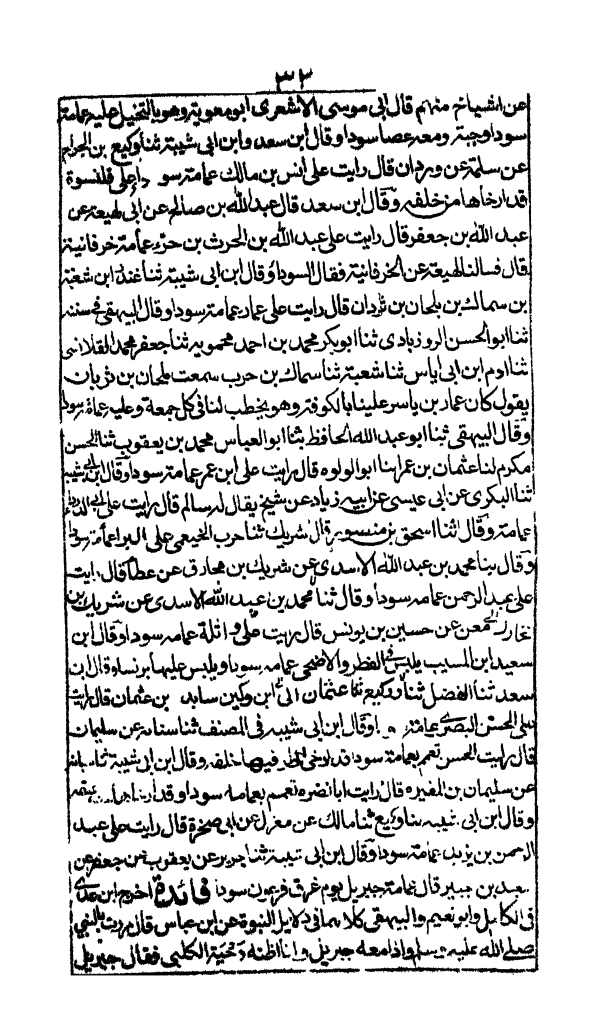 ٣٢
عن اشياخ منهم قال ابى موسى الاشعرى ابو معوية وهو بالنخيل عليه عمامة
سودا وجبة ومعه عصا سودا وقال ابن سعد وابن ابى شيبة ثنا وكيع بن الجراح
عن سلمة بن وردان قال رايت على انس بن مالك عمامة سودا على قلنسوة
قد ارخاها من خلفه وقال ابن سعد قال عبد الله بن صالح عن ابى لهيعة عن
عبد الله بن جعفر قال رايت على عبد الله بن الحرث بن جزء عمامة خرقانية
قال فسالنا لهيعة عن الخرقانية فقال السودا وقال ابن ابى شيبة ثنا غندر ابن شعبة
بن سماك بن ملحان بن ثردان قال رايت على عمار عمامة سودا وقال البيهقى فى سننه
ثنا ابو الحسن الروزبادى ثنا ابو بكر محمد بن احمد محمويه ثنا جعفر محمد القلانسى
ثنا ادم ابن ابى اياس ثنا شعبة ثنا سماك بن حرب سمعت ملحان بن ثربان
يقول كان عمار بن ياسر علينا بالكوفة وهو يخطب لنا فى كل جمعة وعليه عمامة سودا
وقال البيهقى ثنا ابو عبد الله الحافظ ثنا ابو العباس محمد بن يعقوب ثنا الحسن
مكرم لنا عثمان بن عمر ابنا ابو الولوه قال رايت على ابن عمر عمامة سودا وقال ابن ابى شيبة
ثنا البكرى عن ابى عيسى عن ابيه زياد عن شيخ يقال له سالم قال رايت على ابى الدرداء
عمامة وقال ثنا اسحق بن منسوبة قال شريك ثنا حرب الخيعمى على البرا عمامة سودا
وقال بنا محمد بن عبد الله الاسدى عن شريك بن محارق عن عطا قال رايت
على عبد الرحمن عمامه سودا وقال ثنا محمد بن عبد الله الاسدى عن شريك بن
معن عن حسين بن يونس قال رايت على واثلة عمامه سودا وقال ابن
سعيد ابن المسيب يلبس فى الفطر والاضحى عمامه سودا ويلبس عليها برنسا وقال ابن
سعد ثنا الفضل ثنا وكيع ثنا عثمان ابن وكين بن عثمان قال رايت
على الحسن البصرى عمامة سودا وقال ابن ابى شيبه فى المصنف ثنا عن سليمان
قال رايت الحسن تعمم بعمامة سودا قد ارخى خلفه وقال ابن ابى شيبة ثنا
عن سليمان بن المغيره قال رايت ابا نضره تعمم بعمامه سودا وقد ارخاها
وقال ابن ابى شيبه ثنا وكيع ثنا مالك عن مغزل عن ابى صخرة قال رايت على عبد
الرحمن بن يزيد عمامة سودا وقال ابن ابى شيبة ثنا جرير عن يعقوب عن جعفر عن
سعيد بن جبير قال عمامة جبريل يوم غرق فرعون سودا فائدة اخرج ابن عدى
فى الكامل وابو نعيم والبيهقى كلاهما فى دلايل النبوة عن ابن عباس قال مررت بالنبى
صلى الله عليه وسلم واذا معه جبريل وانا اظنه دحية الكلبى فقال جبريل